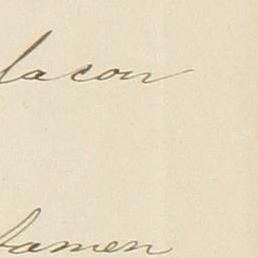 lacon
tamen